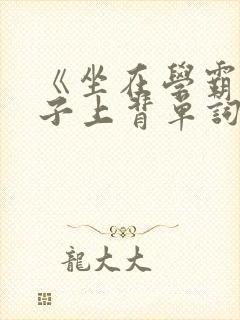 《坐在學霸
子上背單詞
龍大大